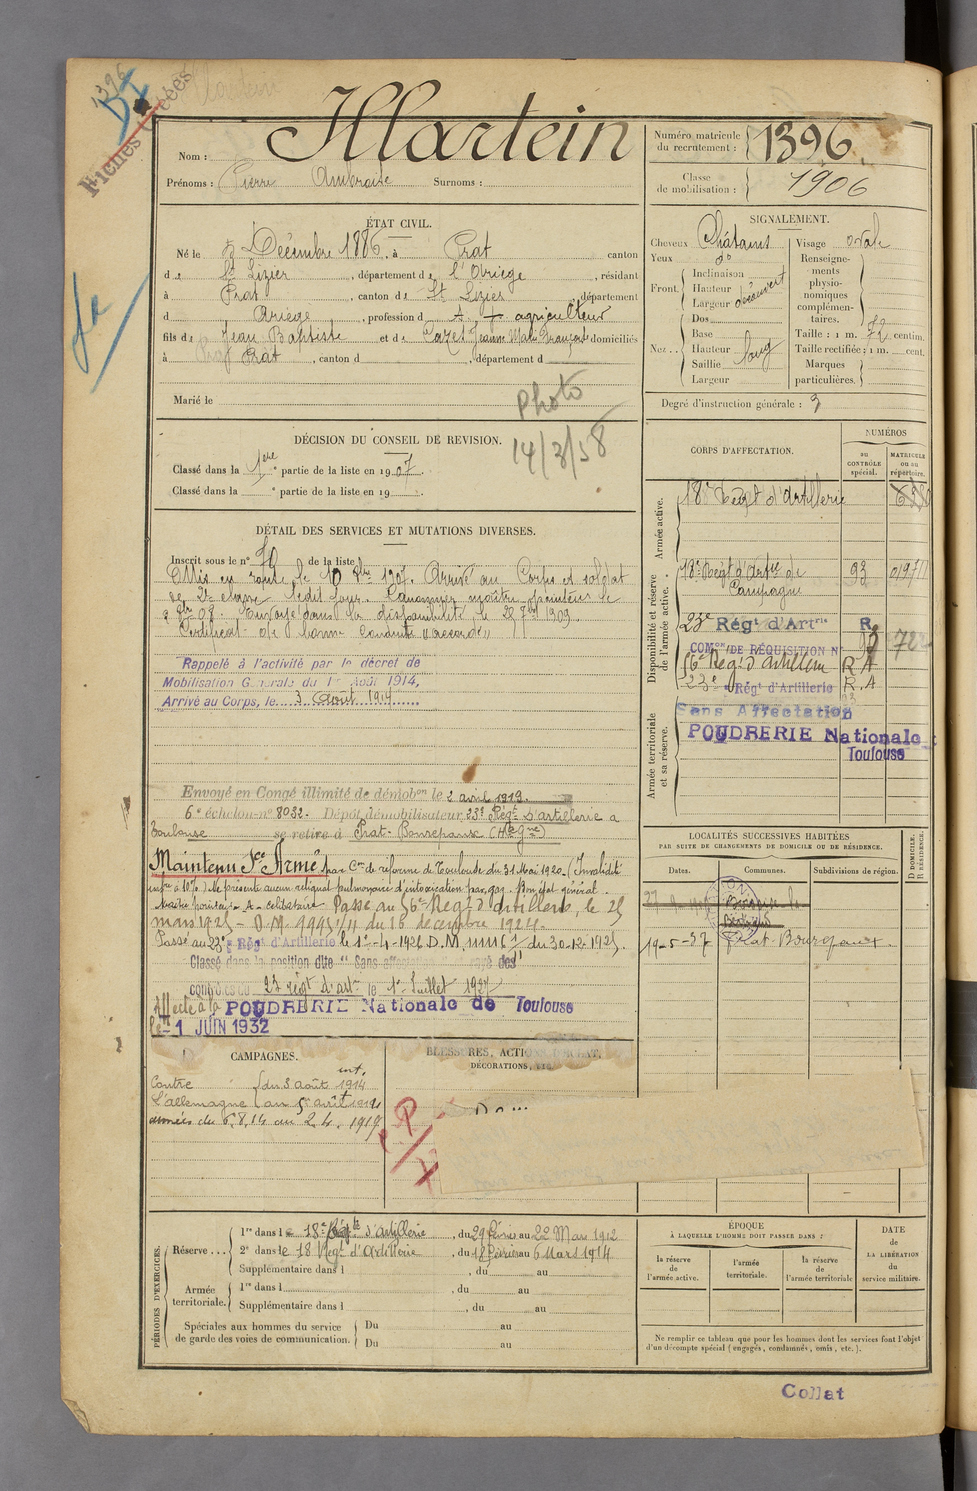 1396
Fiches
Nom : Martein
Prénoms : Pierre Ambroise Surnoms :
Numéro matricule du recrutement : 1396
Classe de mobilisation : 1906
ÉTAT CIVIL.
Né le 5 Décembre 1886, à Prat canton
d e St Lizier, département de l'Ariège, résidant
à Prat, canton de St Lizier, département
d Ariège, profession d agriculteur
fils de Jean Baptiste et de Cazet Jeanne Marie Françoise domiciliés
à Prat, canton d , département d
Marié le
Photo
14/3/58
SIGNALEMENT.
Cheveux Châtains
Yeux do
Front. Inclinaison
Hauteur
Largeur découvert
Nez . . Dos
Base
Hauteur long
Saillie
Largeur
Visage ovale
Renseignements physionomiques complémentaires.
Taille : 1 m. 72 centim.
Taille rectifiée : 1 m. cent.
Marques particulières.
Degré d'instruction générale : 3
DÉCISION DU CONSEIL DE REVISION.
Classé dans la 1ère partie de la liste en 1907.
Classé dans la e partie de la liste en 19 .
CORPS D'AFFECTATION.
NUMÉROS
au CONTRÔLE spécial.
MATRICULE ou au répertoire.
Armée active.
18e Régt d'Artillerie
Disponibilité et réserve de l'armée active.
18e Régt d'Artie de Campagne 93
23e Régt d'Artrie R.
COMon DE RÉQUISITION N°
56e Régt d'artillerie R A
23e Régt d'Artillerie R. A
Sans Affectation
Armée territoriale et sa réserve.
POUDRERIE Nationale
Toulouse
DÉTAIL DES SERVICES ET MUTATIONS DIVERSES.
Inscrit sous le n° 70 de la liste
Mis en route le 10 8bre 1907. Arrivé au Corps et soldat
de 2e classe ledit jour. Canonnier maître pointeur le
8bre 08. Envoyé dans la disponibilité le 25 7bre 1909
Certificat de bonne conduite "accordé"
Rappelé à l'activité par le décret de
Mobilisation Générale du 1er Août 1914,
Arrivé au Corps, le 3 Août 1914
Envoyé en Congé illimité de démobon le 2 avril 1919
6e échelon n° 8032. Dépôt démobilisateur 23e Régt d'artillerie à
Toulouse se retire à Prat-Bonrepaux (Hte Gne)
Maintenu Sce Armé par Con de réforme de Toulouse du 31 Mai 1920. (Invalidité
infre à 10%) Ne présente aucun reliquat pulmonaire d'intoxication par gaz. Bon état général.
Passe au 56e Régt d'artillerie, le 25
mars 1925 - D.M. 9995 1/11 du 16 decembre 1924.
Passé au 23e Régt d'Artillerie le 1er-4-1926 D.M. 11111 6 1/ du 30-12-1925.
Classé dans la position dite "Sans affectation" rayé des
contrôles du 23 régt d'art le 1er Juillet 1927
Affecté à la POUDRERIE Nationale de Toulouse
le 1 JUIN 1932
LOCALITÉS SUCCESSIVES HABITÉES
PAR SUITE DE CHANGEMENTS DE DOMICILE OU DE RÉSIDENCE.
Dates. Communes. Subdivisions de région. D DOMICILE. R RÉSIDENCE.
19-5-27 Prat-Bourepaux
CAMPAGNES.
Contre l'allemagne du 3 août 1914
au 5 avril 1919
armées du 6.8.14 au 2.4.1919
BLESSURES, ACTIONS D'ÉCLAT,
DÉCORATIONS, ETC.
PÉRIODES D'EXERCICES.
Réserve . . . 1re dans le 18e Régt d'Artillerie, du 29 Février au 22 Mars 1912
2e dans le 18 Régt d'Artillerie, du 18 Février au 6 Mars 1914
Supplémentaire dans l , du au
Armée territoriale. 1re dans l , du au
Supplémentaire dans l , du au
Spéciales aux hommes du service de garde des voies de communication. Du au
Du au
ÉPOQUE
À LAQUELLE L'HOMME DOIT PASSER DANS :
la réserve de l'armée active.
l'armée territoriale.
la réserve de l'armée territoriale
DATE de LA LIBÉRATION du service militaire.
Ne remplir ce tableau que pour les hommes dont les services font l'objet
d'un décompte spécial (engagés, condamnés, omis, etc.).
Collat